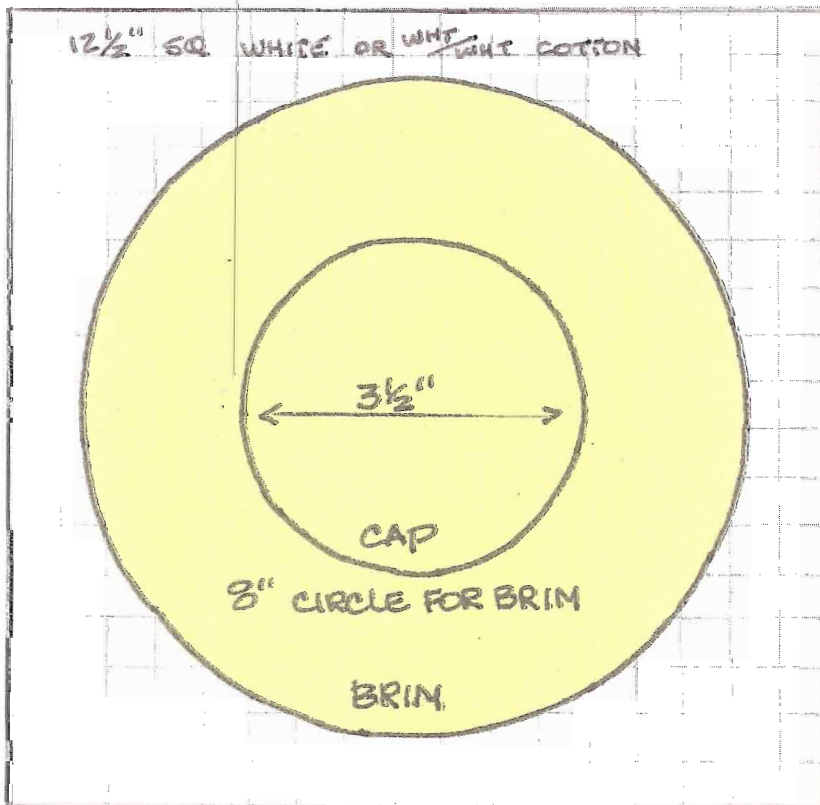 12½" SQ WHITE OR WHT/WHT COTTON
3½"
CAP
8" CIRCLE FOR BRIM
BRIM